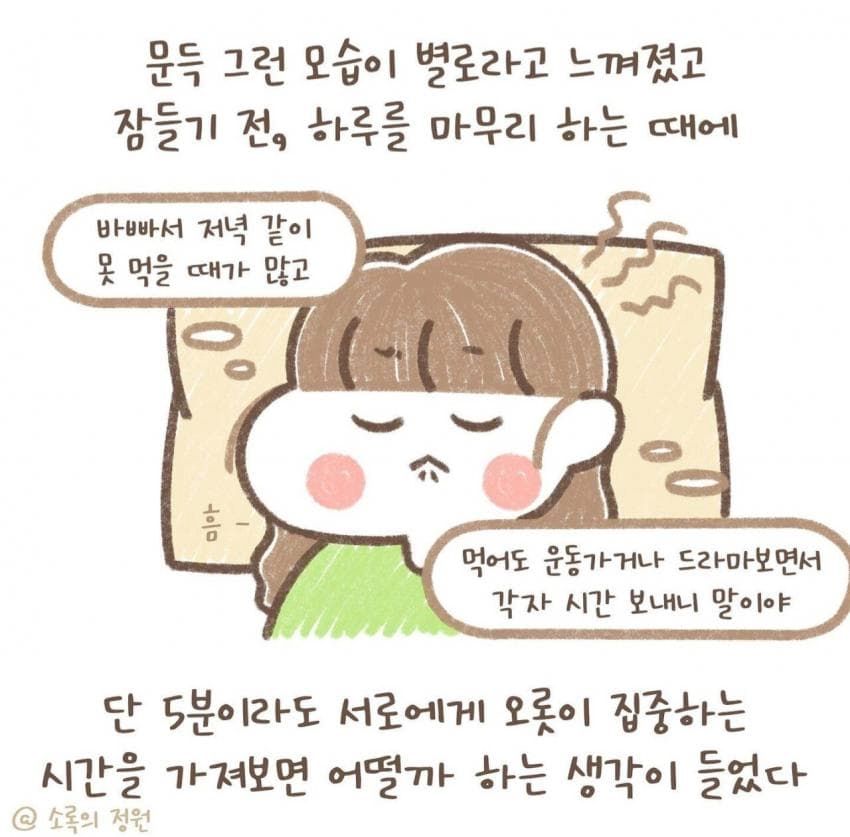 문득 그런 모습이 별로라고 느껴졌고
잠들기 전, 하루를 마무리 하는 때에
바빠서 저녁 같이
못 먹을 때가 많고
흠-
먹어도 운동가거나 드라마보면서
각자 시간 보내니 말이야
단 5분이라도 서로에게 오롯이 집중하는
시간을 가져보면 어떨까 하는 생각이 들었다
@ 소록의 정원